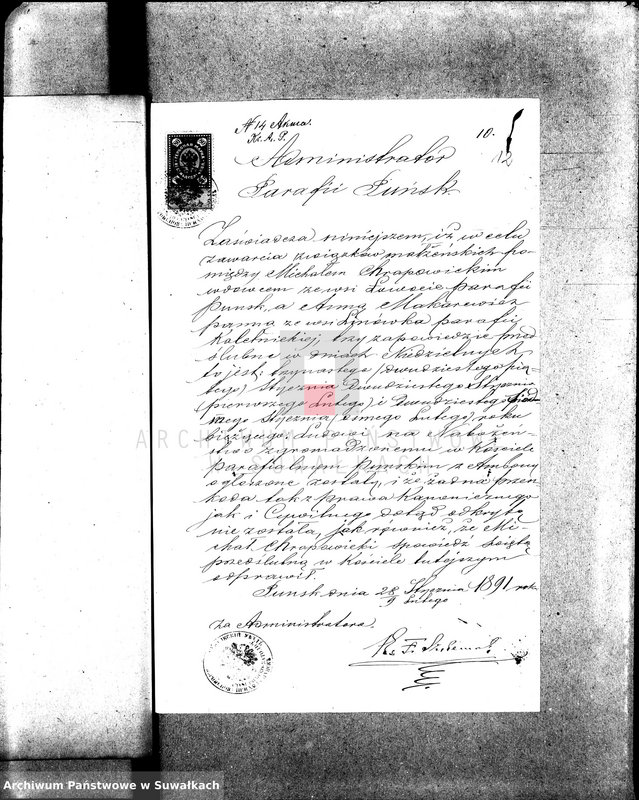 N 14 Akwa.
Kr. A. P.
10.
12
Administrator
Parafii Puńsk
Zaświadcza niniejszem, iż w celu
zawarcia związków małżeńskich po-
między Michałem Chrapowickim
wdowcem ze wsi parafii
Puńsk, a Anną Makarewicz
panną ze wsi Linówka parafii
Kaletnickiej, trzy zapowiedzie przed
ślubne w dniach Niedzielnych
to jest: trzynastego (dwudziestego pią-
tego) Stycznia Dwudziestego Stycznia
(pierwszego Lutego) i Dwudziestego Siód
mego Stycznia (ósmego Lutego) roku
bieżącego, Ludowi na Nabożeń-
stwo zgromadzonemu w Kościele
parafialnym Puńskim z Ambony
ogłoszone zostały, i że żadna przesz-
koda tak z prawa Kanonicznego
jak i Cywilnego dotąd odkrytą
nie została, jak również, że Mi-
chał Chrapowicki spowiedź świętą
przedślubną w Kościele tutejszym
odprawił.
Puńsk dnia 28/9 Stycznia/Lutego 1891 roku
za Administratora
Ks. F.
ARCHIWUM PAŃSTWOWE
W SUWAŁKACH
Archiwum Państwowe w Suwałkach